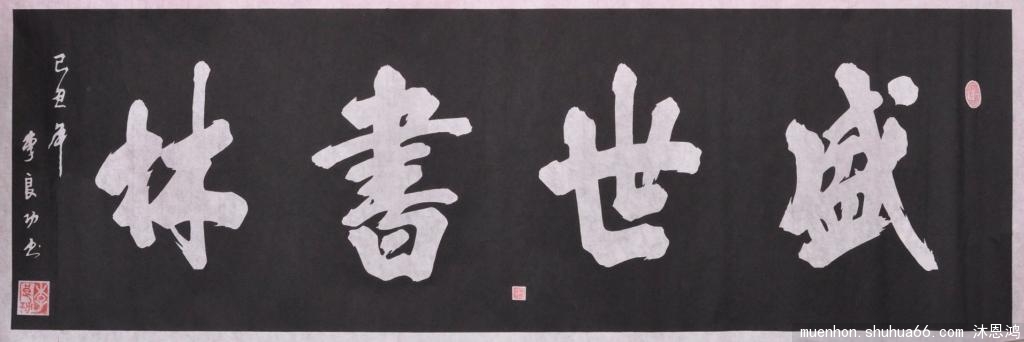 盛世書林
己丑年
李良功书
muenhon.shuhua66.com 沐恩鸿